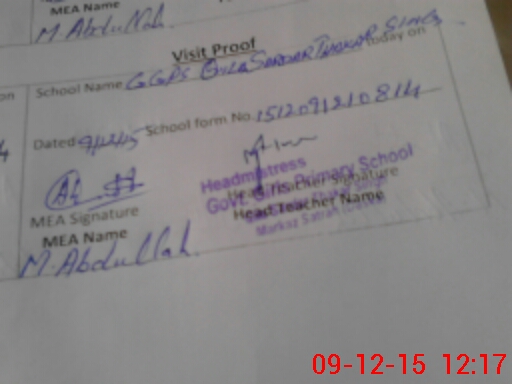 MEA Name
M. Abdullah
Visit Proof
School Name GGPS Qila Sardar Thakar Singh today on
Dated 9/12/15 School form No. 151209121081
MEA Signature
Head Teacher Signature
Headmistress
Govt. Girls Primary School
MEA Name
Head Teacher Name
Markaz
M. Abdullah.
09-12-15 12:17